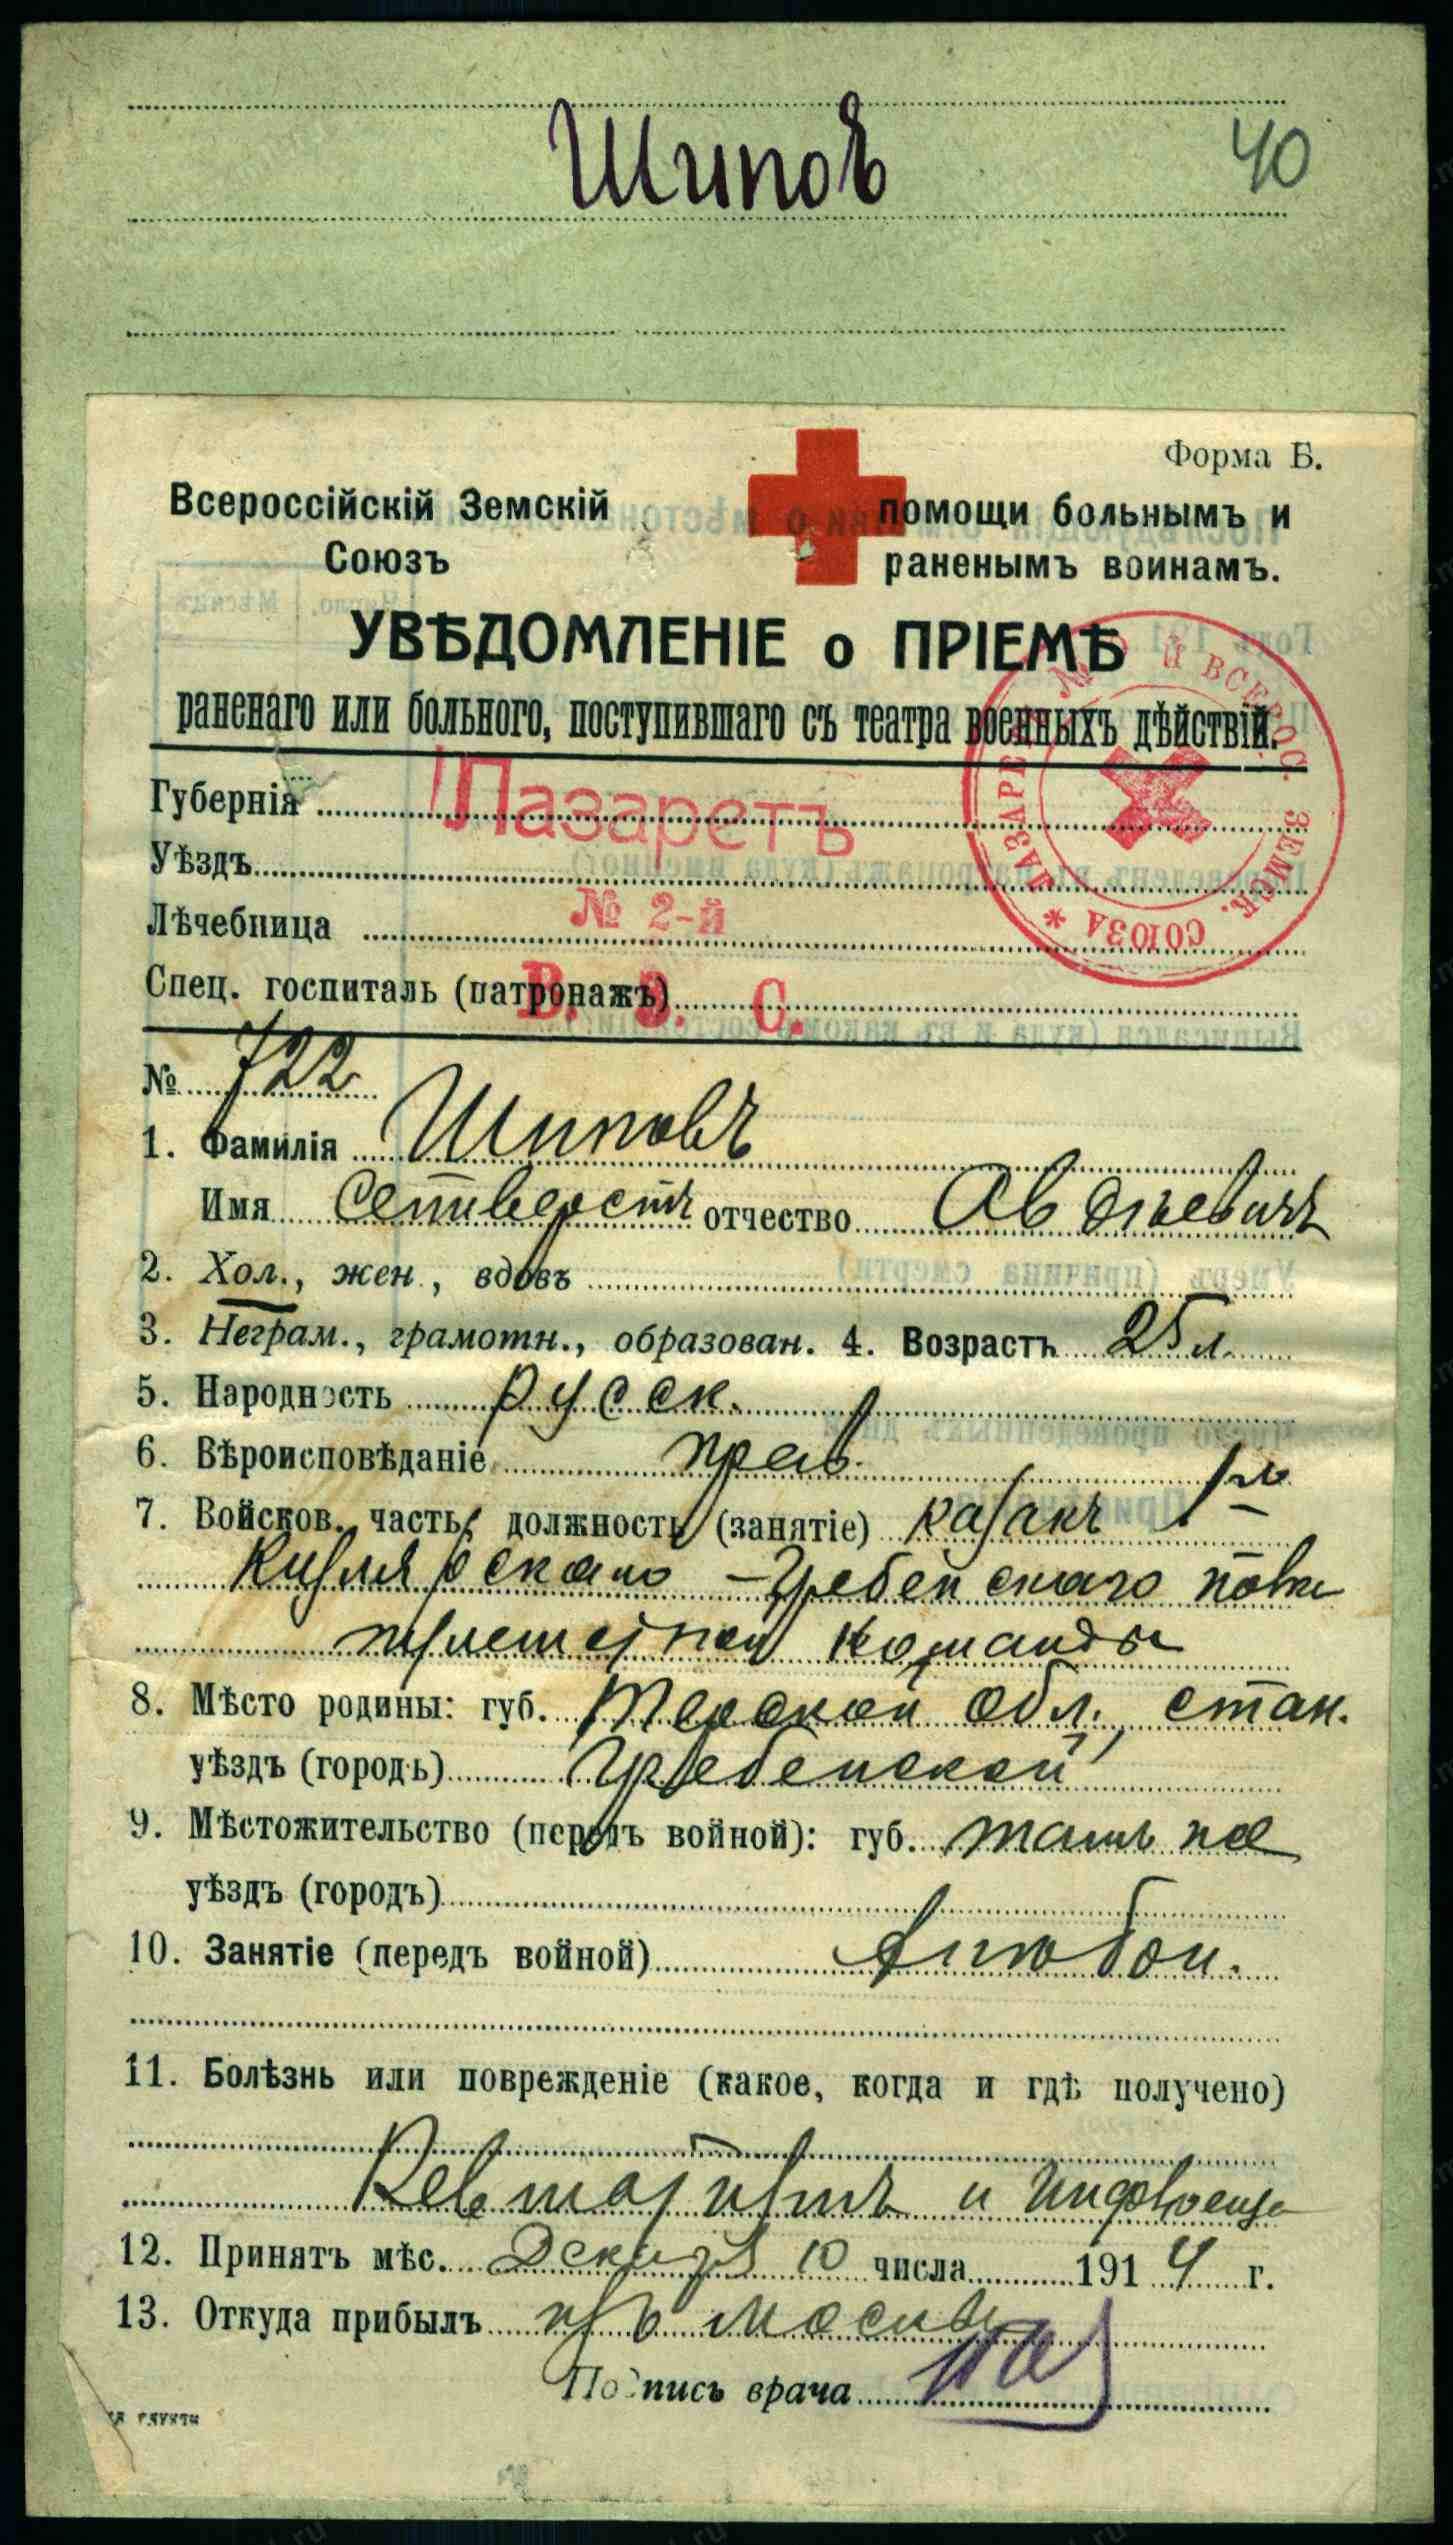 Шиповъ
40
Форма Б.
Всероссійскій Земскій
Союзъ
помощи больнымъ и
раненымъ воинамъ.
УВѢДОМЛЕНІЕ о ПРІЕМѢ
раненаго или больного, поступившаго съ театра военныхъ дѣйствій.
Губернія Лазаретъ
Уѣздъ
Лѣчебница № 2-й
Спец. госпиталь (патронажъ) В. З. С.
ЛАЗАРЕТЪ № 2-Й ВСЕРОС. ЗЕМСК. СОЮЗА *
№ 722
1. Фамилія Шиповъ
Имя Сетиверстъ отчество Авдѣевичъ
2. Хол., жен., вдовъ
3. Неграм., грамотн., образован. 4. Возрастъ 25 л.
5. Народность русск.
6. Вѣроисповѣданіе прав.
7. Войсков. часть, должность (занятіе) казакъ 1-го
Кизлярскаго - Гребенскаго полка
пулеметной команды
8. Мѣсто родины: губ. Терской обл., стан.
уѣздъ (городъ) Гребенской
9. Мѣстожительство (передъ войной): губ. тамъ же
уѣздъ (городъ)
10. Занятіе (передъ войной) хлѣбоп.
11. Болѣзнь или поврежденіе (какое, когда и гдѣ получено)
Ревматизмъ и Инфлюенца
12. Принятъ мѣс. Декабря 10 числа 1914 г.
13. Откуда прибылъ изъ Москвы
Подпись врача